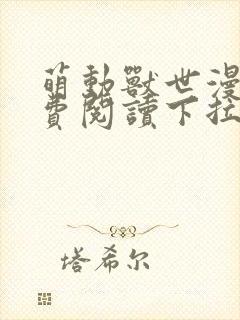 萌動獸世漫
費閱讀下拉
塔希尔